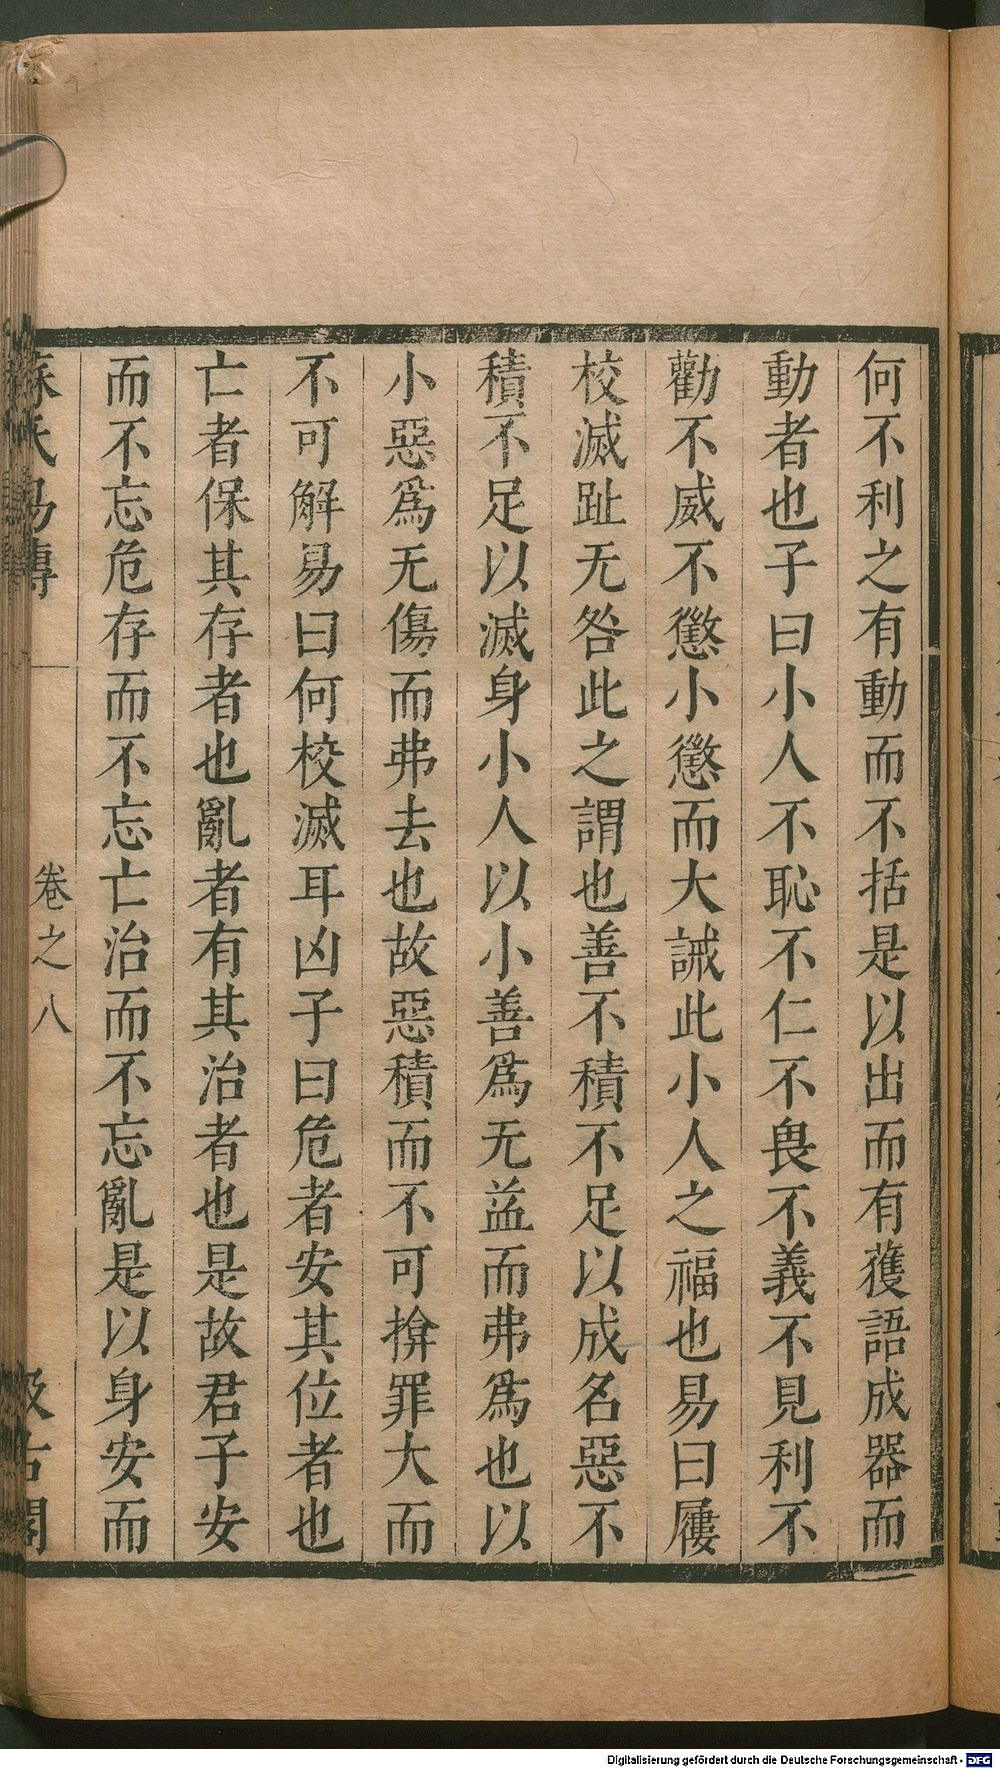 何不利之有動而不括是以出而有獲語成器而
動者也子曰小人不恥不仁不畏不義不見利不
勸不威不懲小懲而大誡此小人之福也易曰屨
校滅趾无咎此之謂也善不積不足以成名惡不
積不足以滅身小人以小善爲无益而弗爲也以
小惡爲无傷而弗去也故惡積而不可揜罪大而
不可解易曰何校滅耳凶子曰危者安其位者也
亡者保其存者也亂者有其治者也是故君子安
而不忘危存而不忘亡治而不忘亂是以身安而
蘇氏易傳 卷之八 汲古閣
Digitalisierung gefördert durch die Deutsche Forschungsgemeinschaft - DFG